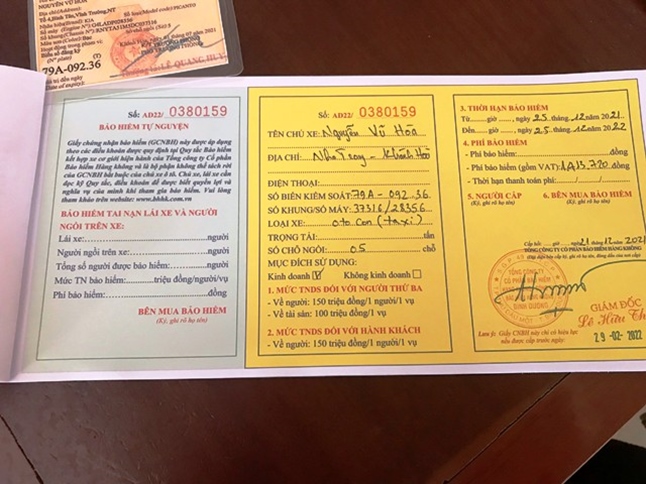 NGUYỄN VŨ HÒA
Địa chỉ(Address):
Tổ 4, Bình Tân, Vĩnh Trường, NT
Nhãn hiệu(Brand): KIA
Số loại(Model code): PICANTO
Số máy (Engine N°): G4LADP028356
Số khung(Chassis N°): RNYTA51M5DC037316
Màu sơn(Color): Bạc
Số chỗ ngồi: 5
Biển số đăng ký
(N° plate)
79A-092.36
LÊ QUANG HUY
Số: AD22/ 0380159
BẢO HIỂM TỰ NGUYỆN
Giấy chứng nhận bảo hiểm (GCNBH) này được áp dụng
theo các điều khoản được quy định tại Quy tắc Bảo hiểm
kết hợp xe cơ giới hiện hành của Tổng công ty Cổ phần
Bảo hiểm Hàng không và là bộ phận không thể tách rời
của GCNBH bắt buộc của chủ xe ô tô. Chủ xe, lái xe cần
đọc kỹ Quy tắc, Điều khoản để được biết quyền lợi và
nghĩa vụ của mình khi tham gia bảo hiểm. Vui lòng
tham khảo trên website: www.bhhk.com.vn
BẢO HIỂM TAI NẠN LÁI XE VÀ NGƯỜI
NGỒI TRÊN XE:
Lái xe:...người
Người ngồi trên xe:...người
Tổng số người được bảo hiểm:...người
Mức TN bảo hiểm:...triệu đồng/người/vụ
Phí bảo hiểm:...đồng
BÊN MUA BẢO HIỂM
(Ký, ghi rõ họ tên)
Số: AD22/ 0380159
TÊN CHỦ XE: Nguyễn Vũ Hòa
ĐỊA CHỈ: Nha Trang - Khánh Hòa
ĐIỆN THOẠI:
SỐ BIỂN KIỂM SOÁT: 79A - 092.36
SỐ KHUNG/SỐ MÁY: 37316 / 28356
LOẠI XE: oto con (taxi)
TRỌNG TẢI:...tấn
SỐ CHỖ NGỒI: 05 chỗ
MỤC ĐÍCH SỬ DỤNG:
Kinh doanh ☑ Không kinh doanh ☐
1. MỨC TNDS ĐỐI VỚI NGƯỜI THỨ BA
- Về người: 150 triệu đồng/1 người/1 vụ
- Về tài sản: 100 triệu đồng/1 vụ
2. MỨC TNDS ĐỐI VỚI HÀNH KHÁCH
- Về người: 150 triệu đồng/1 người/1 vụ
3. THỜI HẠN BẢO HIỂM
Từ...giờ..., ngày 25 tháng 12 năm 2021
Đến...giờ..., ngày 25 tháng 12 năm 2022
4. PHÍ BẢO HIỂM
- Phí bảo hiểm:...đồng
- Phí bảo hiểm (gồm VAT): đồng
- Thời hạn thanh toán phí: / /
5. NGƯỜI CẤP 6. BÊN MUA BẢO HIỂM
(Ký, ghi rõ họ tên) (Ký, ghi rõ họ tên)
Cấp hồi...giờ, ngày 21/12/2021
TỔNG CÔNG TY CỔ PHẦN BẢO HIỂM HÀNG KHÔNG
TỔNG CÔNG TY
CỔ PHẦN BẢO HIỂM
HÀNG KHÔNG
BÌNH DƯƠNG
GIÁM ĐỐC
Lê Hữu
Lưu ý: Giấy CNBH này chỉ có hiệu lực
nếu được cấp trước ngày: 29-02-2022